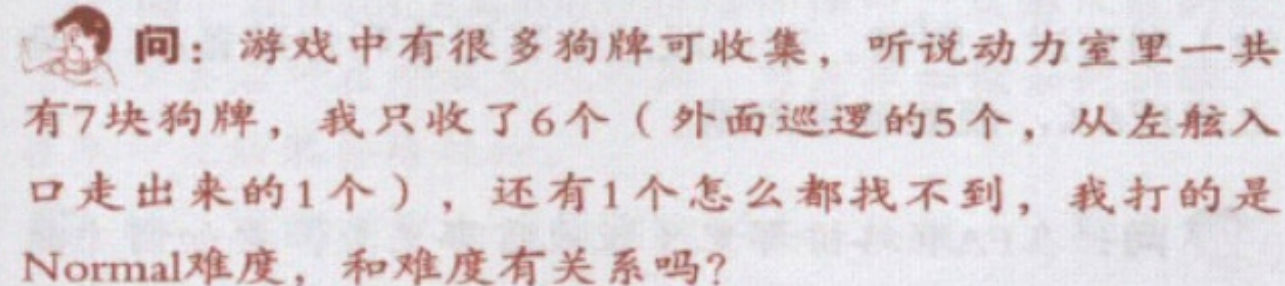 问：游戏中有很多狗牌可收集，听说动力室里一共
有7块狗牌，我只收了6个（外面巡逻的5个，从左舷入
口走出来的1个），还有1个怎么都找不到，我打的是
Normal难度，和难度有关系吗？